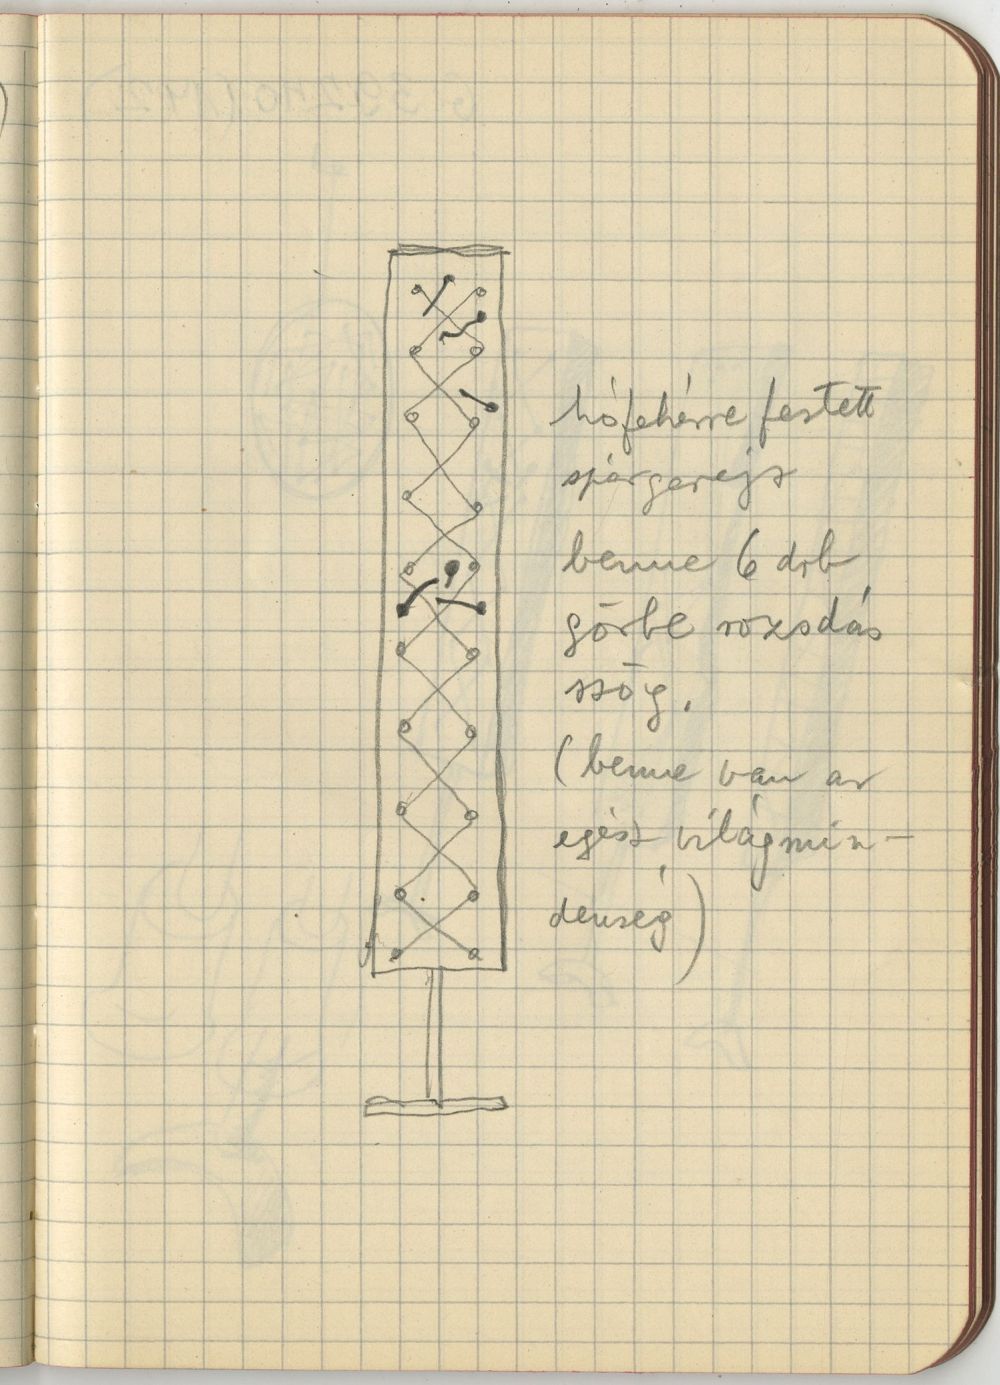 hófehérre festett
spárgarejz
benne 6 drb
görbe rozsdás
szög.
(benne van az
egész világmin-
denség)